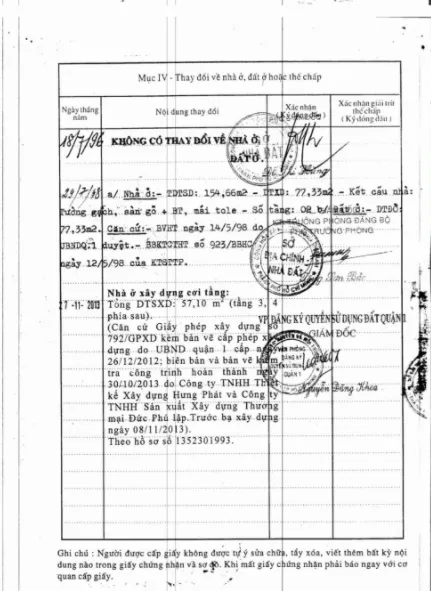 Mục IV - Thay đổi về nhà ở, đất ở hoặc thế chấp
Ngày tháng năm
Nội dung thay đổi
Xác nhận
(Ký đóng dấu)
Xác nhận giải trừ
thế chấp
(Ký đóng dấu)
18/7/96 KHÔNG CÓ THAY ĐỔI VỀ NHÀ Ở,
ĐẤT Ở.
NHÀ ĐẤT
29/7/98 a/ Nhà ở:- TDTSD: 154,66m2 - DTXD: 77,33m2 - Kết cấu nhà:
Tường gạch, sàn gỗ + BT, mái tole - Số tầng: 02 b/ Đất ở:- DTĐƠ:
77,33m2. Căn cứ:- BVHT ngày 14/5/98 do
TRƯỞNG PHÒNG ĐĂNG BỘ
UBNDQ.1 duyệt.- BBKTCTHT số 923/BBHC
TRƯỞNG PHÒNG
ngày 12/5/98 của KTSTTP.
SỞ
ĐỊA CHÍNH
NHÀ ĐẤT
27 -11- 2013
Nhà ở xây dựng cơi tầng:
Tổng DTSXD: 57,10 m² (tầng 3, 4
phía sau).
(Căn cứ Giấy phép xây dựng số
792/GPXD kèm bản vẽ cấp phép xây
dựng do UBND quận 1 cấp ngày
26/12/2012; biên bản và bản vẽ kiểm
tra công trình hoàn thành ngày
30/10/2013 do Công ty TNHH Thiết
kế Xây dựng Hưng Phát và Công ty
TNHH Sản xuất Xây dựng Thương
mại Đức Phú lập.Trước bạ xây dựng
ngày 08/11/2013).
Theo hồ sơ số 1352301993.
VP. ĐĂNG KÝ QUYỀN SỬ DỤNG ĐẤT QUẬN 1
GIÁM ĐỐC
VĂN PHÒNG
ĐĂNG KÝ
QUYỀN SỬ DỤNG ĐẤT
QUẬN 1
Nguyễn Đăng Khoa
Ghi chú : Người được cấp giấy không được tự ý sửa chữa, tẩy xóa, viết thêm bất kỳ nội
dung nào trong giấy chứng nhận và sơ đồ. Khi mất giấy chứng nhận phải báo ngay với cơ
quan cấp giấy.